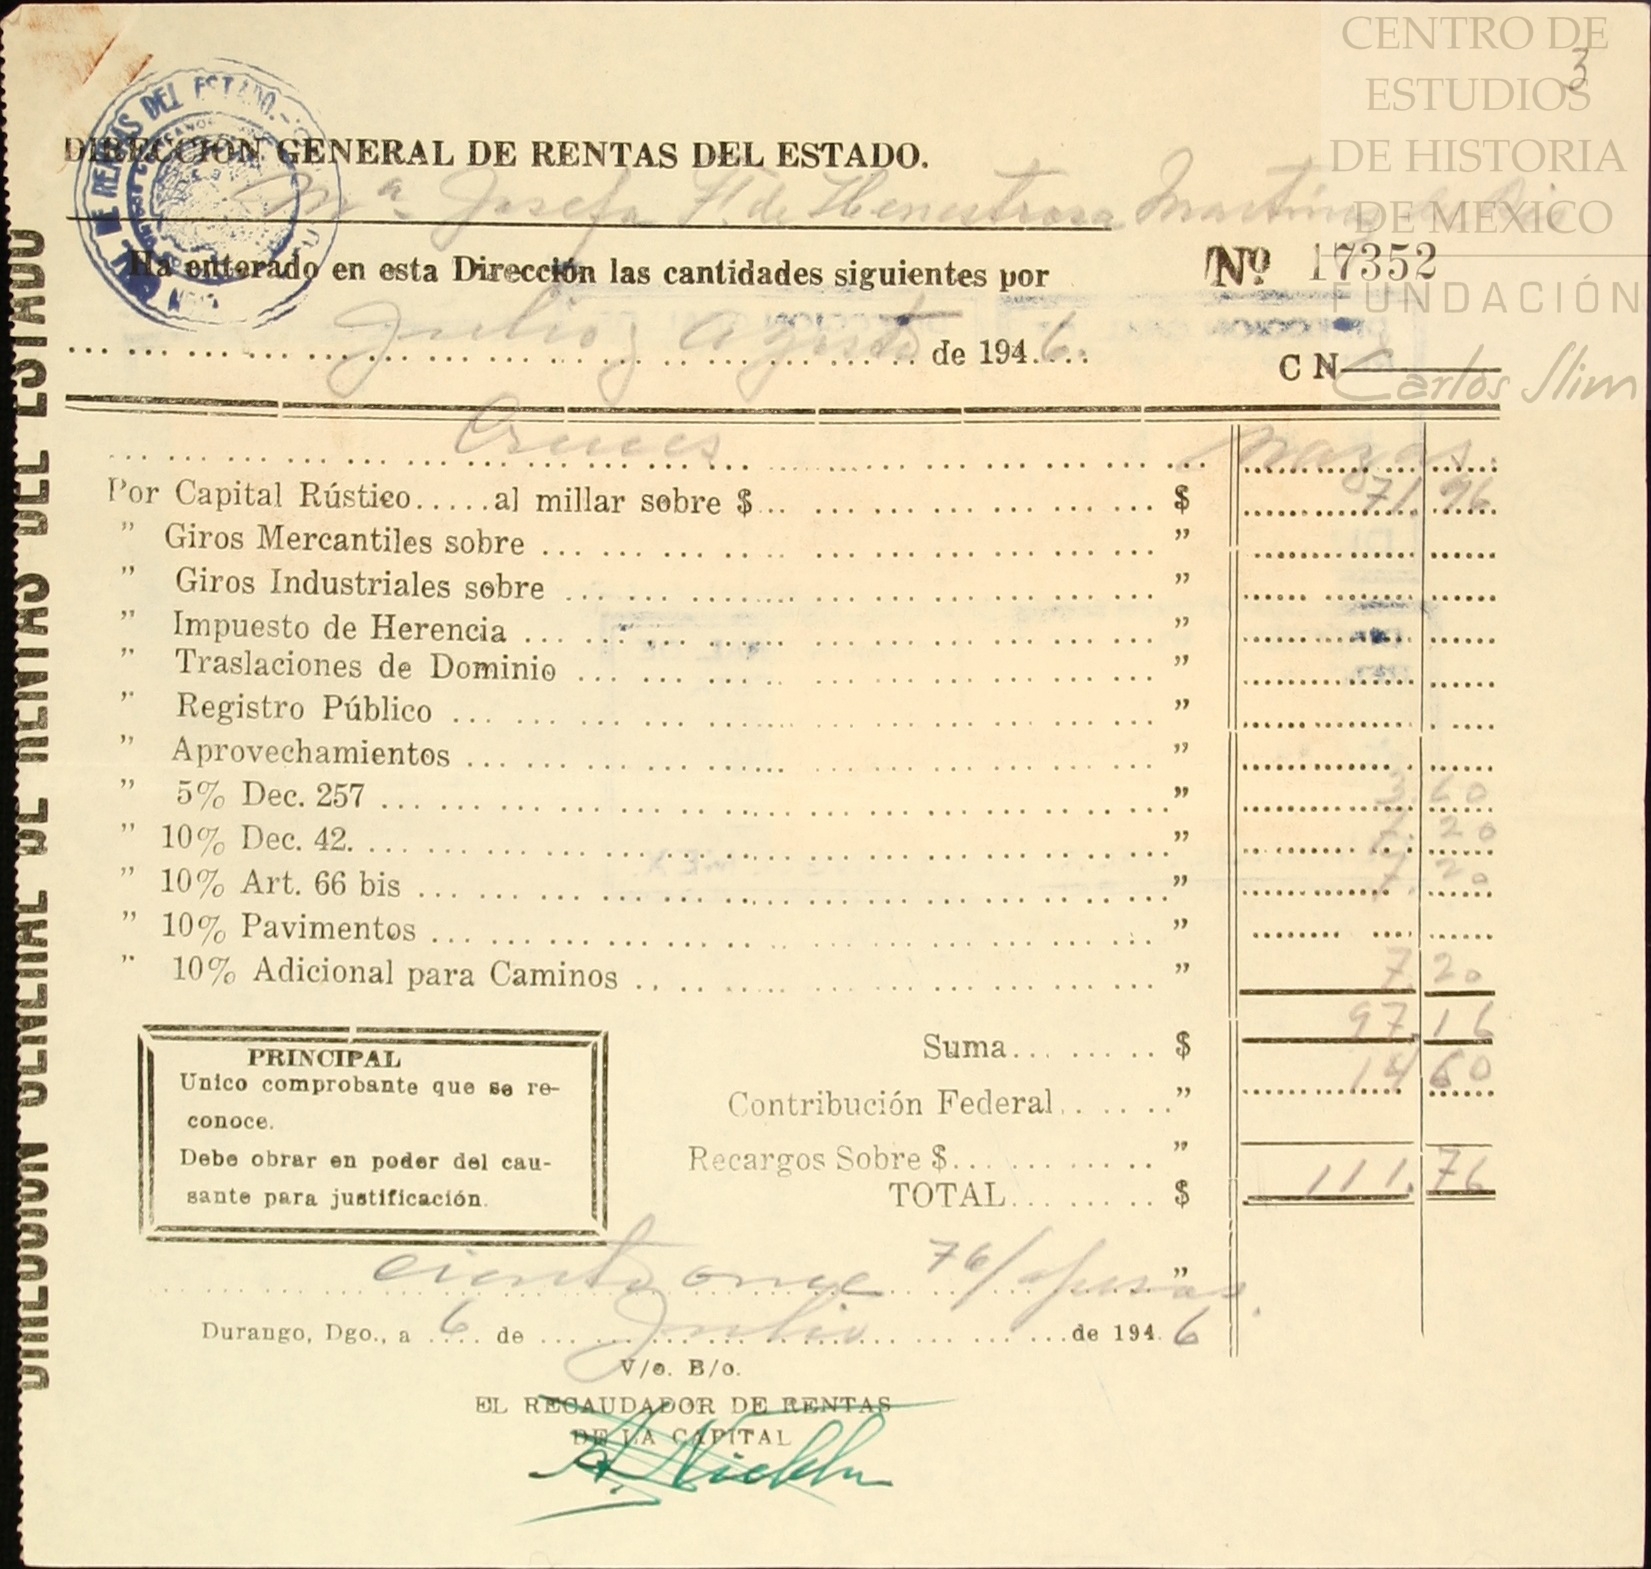 CENTRO DE
ESTUDIOS
DE HISTORIA
DE MÉXICO
FUNDACIÓN
Carlos Slim
3
DIRECCION GENERAL DE RENTAS DEL ESTADO
DIRECCION GENERAL DE RENTAS DEL ESTADO.
Mª Josefa F. de Henestrosa Martínez
Ha enterado en esta Dirección las cantidades siguientes por
Nº 17352
Julio y Agosto de 1946.
C N
Cruces
Nazas.
Por Capital Rústico.....al millar sobre $ $ 71.96
" Giros Mercantiles sobre "
" Giros Industriales sobre "
" Impuesto de Herencia "
" Traslaciones de Dominio "
" Registro Público "
" Aprovechamientos "
" 5% Dec. 257 " 3.60
" 10% Dec. 42. " 7.20
" 10% Art. 66 bis " 7.20
" 10% Pavimentos "
" 10% Adicional para Caminos " 7.20
Suma $ 97.16
Contribución Federal " 14 60
Recargos Sobre $ "
TOTAL $ 111.76
PRINCIPAL
Unico comprobante que se re-
conoce.
Debe obrar en poder del cau-
sante para justificación.
ciento once 76/ pesos. "
Durango, Dgo., a 6 de Julio de 1946
V/o. B/o.
EL RECAUDADOR DE RENTAS
DE LA CAPITAL